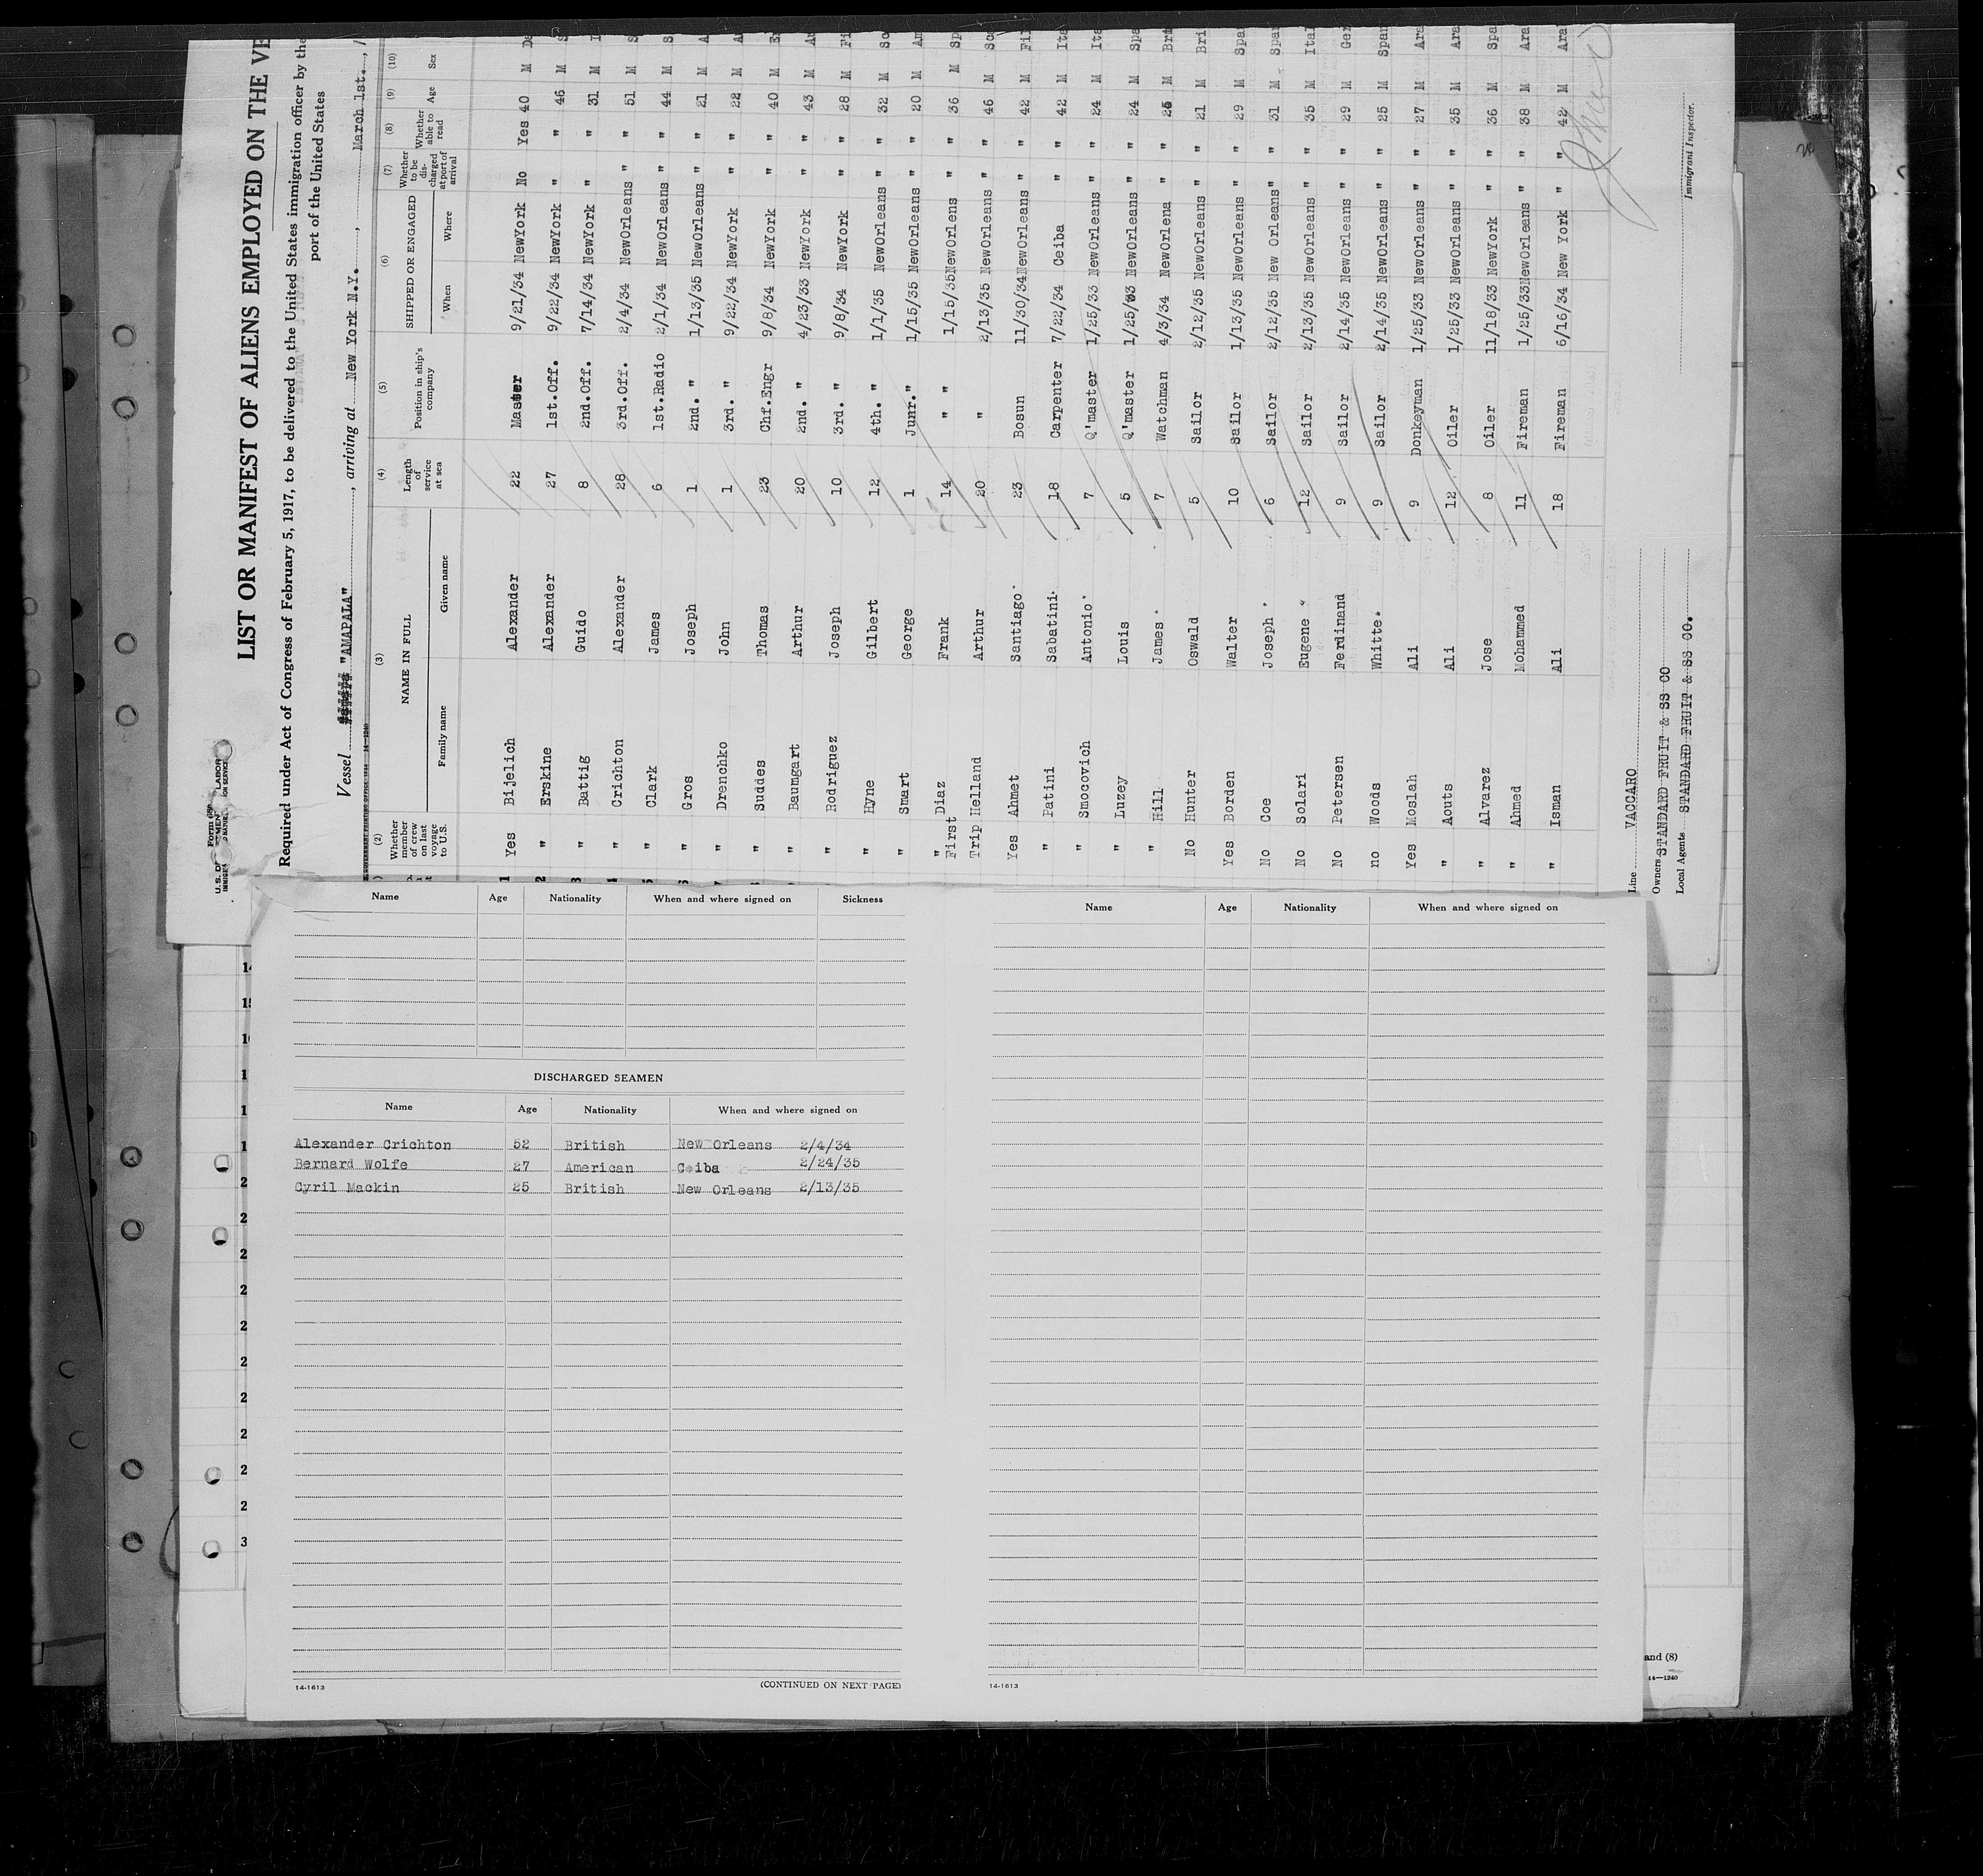 Form 689
U. S. D LABOR
LIST OR MANIFEST OF ALIENS EMPLOYED ON THE VE
Required under Act of Congress of February 5, 1917, to be delivered to the United States immigration officer by the
port of the United States
Vessel "AMAPALA", arriving at New York N.Y., March 1st.,
(2) (3) (4) (5) (6) (7) (8) (9) (10)
Whether member of crew on last voyage to U.S. NAME IN FULL Length of service at sea Position in ship's company SHIPPED OR ENGAGED Whether to be discharged at port of arrival Whether able to read Age Sex
Family name Given name When Where
1 Yes Bijelich Alexander 22 Master 9/21/34 NewYork No Yes 40 M Da
2 " Erskine Alexander 27 1st.Off. 9/22/34 NewYork " " 46 M S
3 " Battig Guido 8 2nd.Off. 7/14/34 NewYork " " 31 M I
4 " Crichton Alexander 28 3rd.Off. 2/4/34 NewOrleans " " 51 M S
5 " Clark James 6 1st.Radio 2/1/34 NewOrleans " " 44 M S
6 " Gros Joseph 1 2nd. " 1/13/35 NewOrleans " " 21 M A
7 " Drenchko John 1 3rd. " 9/22/34 NewYork " " 22 M A
8 " Sudes Thomas 23 Chf.Engr 9/8/34 NewYork " " 40 M E
" Baumgart Arthur 20 2nd. " 4/23/33 NewYork " " 43 M A
" Rodriguez Joseph 10 3rd. " 9/8/34 NewYork " " 28 M Fi
" Hyne Gilbert 12 4th. " 1/1/35 NewOrleans " " 32 M Sc
" Smart George 1 Junr. " 1/15/35 NewOrleans " " 20 M Am
" Diaz Frank 14 " " 1/15/35 NewOrlens " " 36 M Sp
First Trip Helland Arthur 20 " 2/13/35 NewOrleans " " 46 M Sca
Yes Ahmet Santiago 23 Bosun 11/30/34 NewOrleans " " 42 M Fil
" Patini Sabatini 18 Carpenter 7/22/34 Ceiba " " 42 M Ita
" Smocovich Antonio 7 Q'master 1/25/33 NewOrleans " " 24 M Ita
" Luzey Louis 5 Q'master 1/25/33 NewOrleans " " 24 M Spa
" Hill James 7 Watchman 4/3/34 NewOrlena " " 25 M Bri
No Hunter Oswald 5 Sailor 2/12/35 NewOrleans " " 21 M Bri
Yes Borden Walter 10 Sailor 1/13/35 NewOrleans " " 29 M Spar
No Coe Joseph 6 Sailor 2/12/35 New Orleans " " 31 M Spar
No Solari Eugene 12 Sailor 2/13/35 NewOrleans " " 35 M Ital
No Petersen Ferdinand 9 Sailor 2/14/35 NewOrleans " " 29 M Ger
no Woods Whitte. 9 Sailor 2/14/35 NewOrleans " " 25 M Span
Yes Moslah Ali 9 Donkeyman 1/25/33 NewOrleans " " 27 M Ara
" Aouts Ali 12 Oiler 1/25/33 NewOrleans " " 35 M Ara
" Alvarez Jose 8 Oiler 11/18/33 NewYork " " 36 M Spa
" Ahmed Mohammed 11 Fireman 1/25/33 NewOrleans " " 38 M Ara
" Isman Ali 18 Fireman 6/16/34 New York " " 42 M Ara
Line VACCARO
Owners STANDARD FRUIT & SS CO
Local Agents STANDARD FRUIT & SS CO.
Immigrant Inspector.
Name Age Nationality When and where signed on Sickness
DISCHARGED SEAMEN
Name Age Nationality When and where signed on
Alexander Crichton 52 British New Orleans 2/4/34
Bernard Wolfe 27 American Ceiba 2/24/35
Cyril Mackin 25 British New Orleans 2/13/35
14-1613
(CONTINUED ON NEXT PAGE)
Name Age Nationality When and where signed on
14-1613
and (8)
14—1240